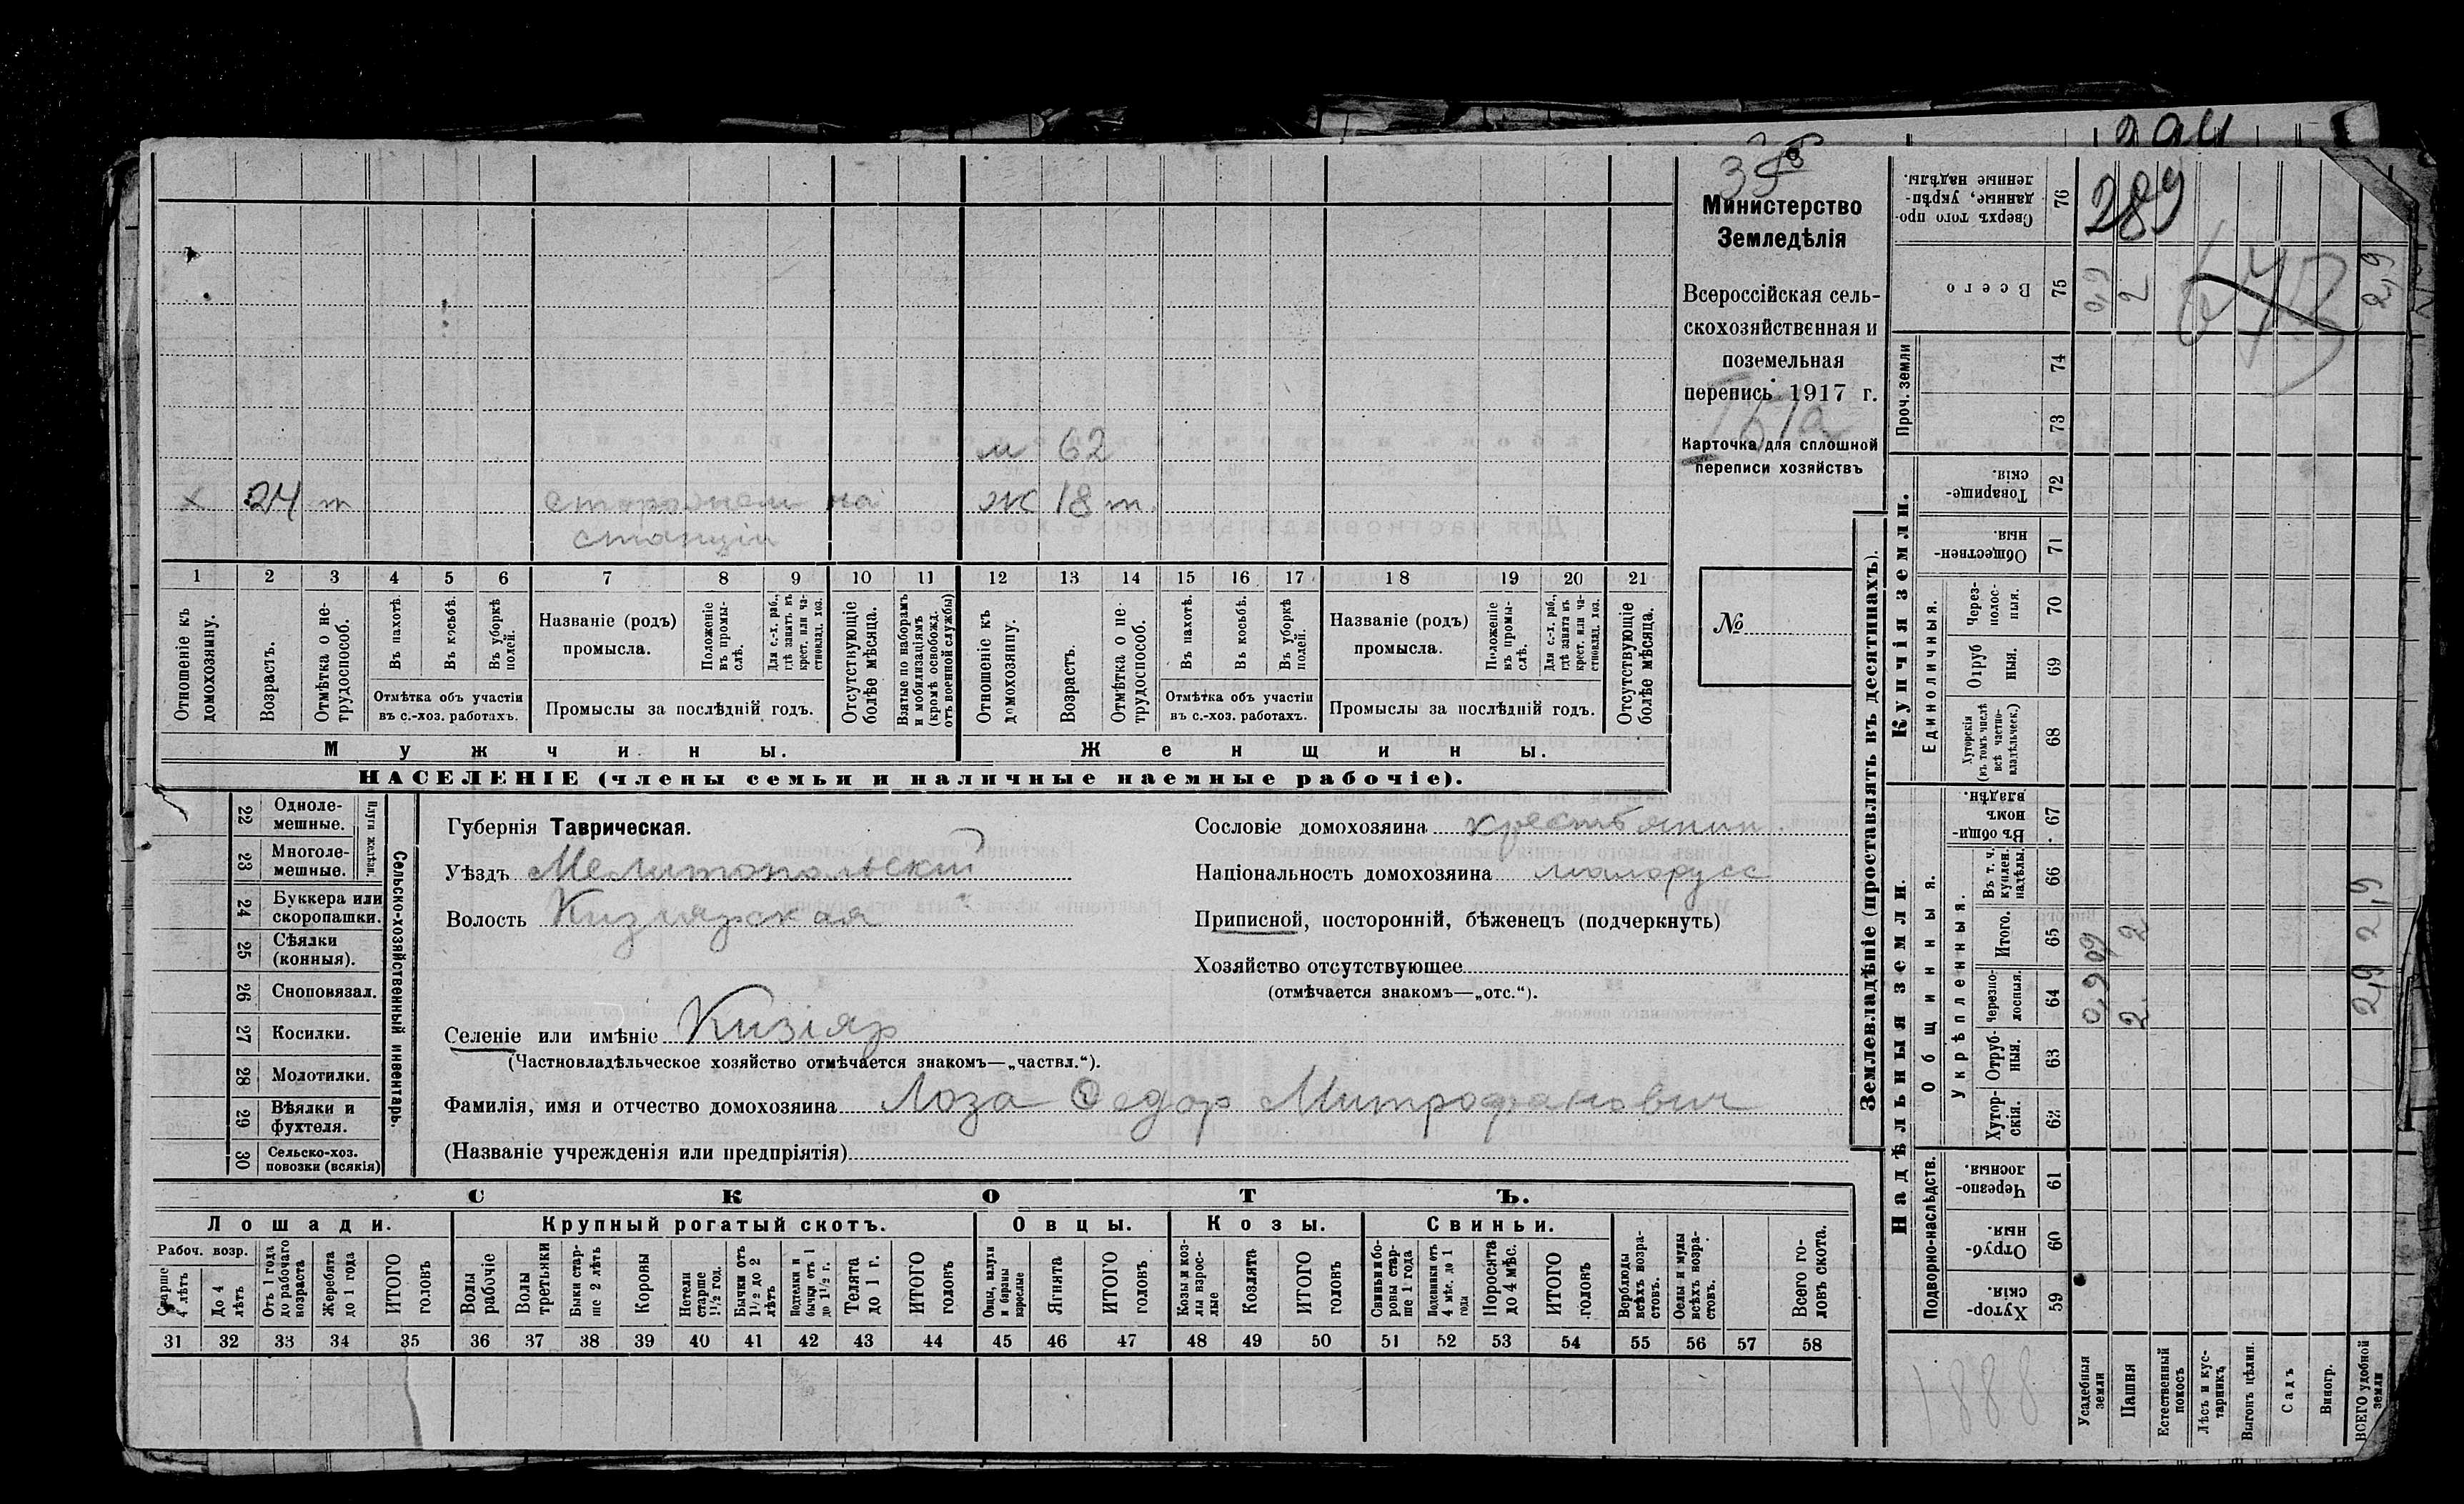 294
35
289
Министерство
Земледѣлія
Всероссійская сель-
скохозяйственная и
поземельная
перепись 1917 г.
Карточка для сплошной
переписи хозяйствъ
№
м 62
х 24 т сторожем на ж 18 т.
станціи
1 2 3 4 5 6 7 8 9 10 11 12 13 14 15 16 17 18 19 20 21
Отношеніе къ домохозяину.
Возрастъ.
Отмѣтка о не-трудоспособ.
Въ пахотѣ.
Въ косьбѣ.
Въ уборкѣ полей.
Отмѣтка объ участіи
въ с.-хоз. работахъ.
Названіе (родъ)
промысла.
Положеніе въ промы-слѣ.
Для с.-х. раб., гдѣ занятъ въ крест. или ча-стновлад. хоз.
Промыслы за послѣдній годъ.
Отсутствующіе болѣе мѣсяца.
Взятые по наборамъ и мобилизаціямъ (кромѣ освобожд. отъ военной службы)
Отношеніе къ домохозяину.
Возрастъ.
Отмѣтка о не-трудоспособ.
Въ пахотѣ.
Въ косьбѣ.
Въ уборкѣ полей.
Отмѣтка объ участіи
въ с.-хоз. работахъ.
Названіе (родъ)
промысла.
Положеніе въ промы-слѣ.
Для с.-х. раб., гдѣ занята въ крест. или ча-стновлад. хоз.
Промыслы за послѣдній годъ.
Отсутствующіе болѣе мѣсяца.
Мужчины.
Женщины.
НАСЕЛЕНІЕ (члены семьи и наличные наемные рабочіе).
Сельско-хозяйственный инвентарь.
Плуги желѣзн.
22 Одноле-мешные.
23 Многоле-мешные.
24 Буккера или скоропашки.
25 Сѣялки (конныя).
26 Сноповязал.
27 Косилки.
28 Молотилки.
29 Вѣялки и фухтеля.
30 Сельско-хоз. повозки (всякія)
Губернія Таврическая.
Уѣздъ Мелитопольскій
Волость Кизіярская
Селеніе или имѣніе Кизіяр
(Частновладѣльческое хозяйство отмѣчается знакомъ—„частвл.“).
Фамилія, имя и отчество домохозяина Лоза Ѳедор Митрофанович
(Названіе учрежденія или предпріятія)
Сословіе домохозяина крестьянин
Національность домохозяина малорусс
Приписной, посторонній, бѣженецъ (подчеркнуть)
Хозяйство отсутствующее
(отмѣчается знакомъ—„отс.“).
СКОТЪ.
Лошади.
Крупный рогатый скотъ.
Овцы.
Козы.
Свиньи.
Рабоч. возр.
Старше 4 лѣтъ
До 4 лѣтъ
Отъ 1 года до рабочаго возраста
Жеребята до 1 года
ИТОГО головъ
Волы рабочіе
Волы третьяки
Быки стар-ше 2 лѣтъ
Коровы
Нетели старше 1½ год.
Бычки отъ 1½ до 2 лѣтъ
Подтелки и бычки отъ 1 до 1½ г.
Телята до 1 г.
ИТОГО головъ
Овцы, валухи и бараны взрослые
Ягнята
ИТОГО головъ
Козы и коз-лы взрос-лые
Козлята
ИТОГО головъ
Свиньи и бо-ровы стар-ше 1 года
Подсвинки отъ 4 мѣс. до 1 года
Поросята до 4 мѣс.
ИТОГО головъ
Верблюды всѣхъ возра-стовъ.
Ослы и мулы всѣхъ возра-стовъ.
Всего го-ловъ скота.
31 32 33 34 35 36 37 38 39 40 41 42 43 44 45 46 47 48 49 50 51 52 53 54 55 56 57 58
Землевладѣніе (проставлять въ десятинахъ).
Купчія земли.
Надѣльныя земли.
Сверхъ того про-данные, укрѣп-ленные надѣлы. 76
Всего 75 0,9 2 2,9
Проч. земли
74
73
Товарище-скія. 72
Обществен-ныя 71
Единоличныя.
Через-полос-ныя. 70
Отруб ныя. 69
Хуторскія (въ томъ числѣ всѣ частно-владѣльческ.) 68
Общинныя.
Въ общи-номъ владѣн. 67
Укрѣпленныя.
Въ т. ч. куплен. надѣлы. 66
Итого. 65 0,9 2 2,9
Черезпо-лосныя. 64 0,9 2 2,9
Отруб-ныя. 63
Хутор-скія. 62
Подворно-наслѣдств.
Черезпо-лосныя. 61
Отруб-ныя. 60
Хутор-скія. 59
1888
Усадебныя земли
Пашня
Естественный покосъ
Лѣсъ и кус-тарникъ
Выгонъ цѣлин.
Садъ
Виногр.
ВСЕГО удобной земли